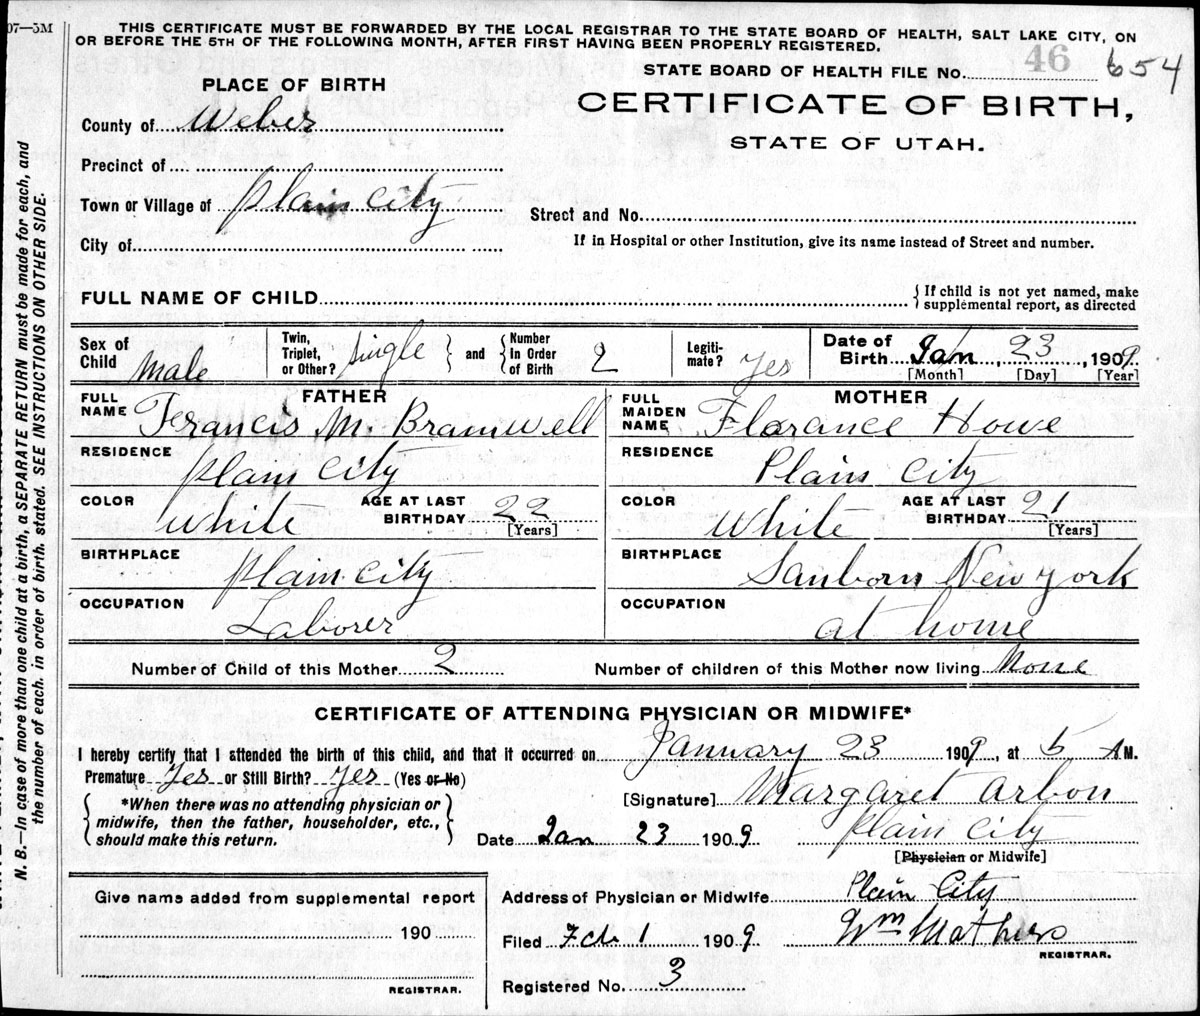 07—5M
THIS CERTIFICATE MUST BE FORWARDED BY THE LOCAL REGISTRAR TO THE STATE BOARD OF HEALTH, SALT LAKE CITY, ON
OR BEFORE THE 5TH OF THE FOLLOWING MONTH, AFTER FIRST HAVING BEEN PROPERLY REGISTERED.
STATE BOARD OF HEALTH FILE No. 46 654
PLACE OF BIRTH
CERTIFICATE OF BIRTH,
STATE OF UTAH.
County of Weber
Precinct of
Town or Village of Plain City
Street and No.
City of
If in Hospital or other Institution, give its name instead of Street and number.
FULL NAME OF CHILD
{If child is not yet named, make
supplemental report, as directed
Sex of Child Male
Twin, Triplet, or Other? Single } and { Number In Order of Birth 2
Legiti-mate? Yes
Date of Birth Jan, 23, 1909.
[Month] [Day] [Year]
FATHER
FULL NAME Francis M. Bramwell
MOTHER
FULL MAIDEN NAME Florance Howe
RESIDENCE Plain City
RESIDENCE Plain City
COLOR White AGE AT LAST BIRTHDAY 22 [Years]
COLOR White AGE AT LAST BIRTHDAY 21 [Years]
BIRTHPLACE Plain City
BIRTHPLACE Sanborn New York
OCCUPATION Laborer
OCCUPATION at home
Number of Child of this Mother 2
Number of children of this Mother now living None
CERTIFICATE OF ATTENDING PHYSICIAN OR MIDWIFE*
I hereby certify that I attended the birth of this child, and that it occurred on January 23 1909, at 5 AM.
Premature Yes or Still Birth? Yes (Yes or No)
{*When there was no attending physician or
midwife, then the father, householder, etc.,
should make this return.}
[Signature] Margaret Arbon
Date Jan 23 1909 Plain City
[Physician or Midwife]
Give name added from supplemental report
190
REGISTRAR.
Address of Physician or Midwife Plain City
Filed Feb 1 1909 Wm Mathers
REGISTRAR.
Registered No. 3
N. B.—In case of more than one child at a birth, a SEPARATE RETURN must be made for each, and
the number of each, in order of birth, stated. SEE INSTRUCTIONS ON OTHER SIDE.